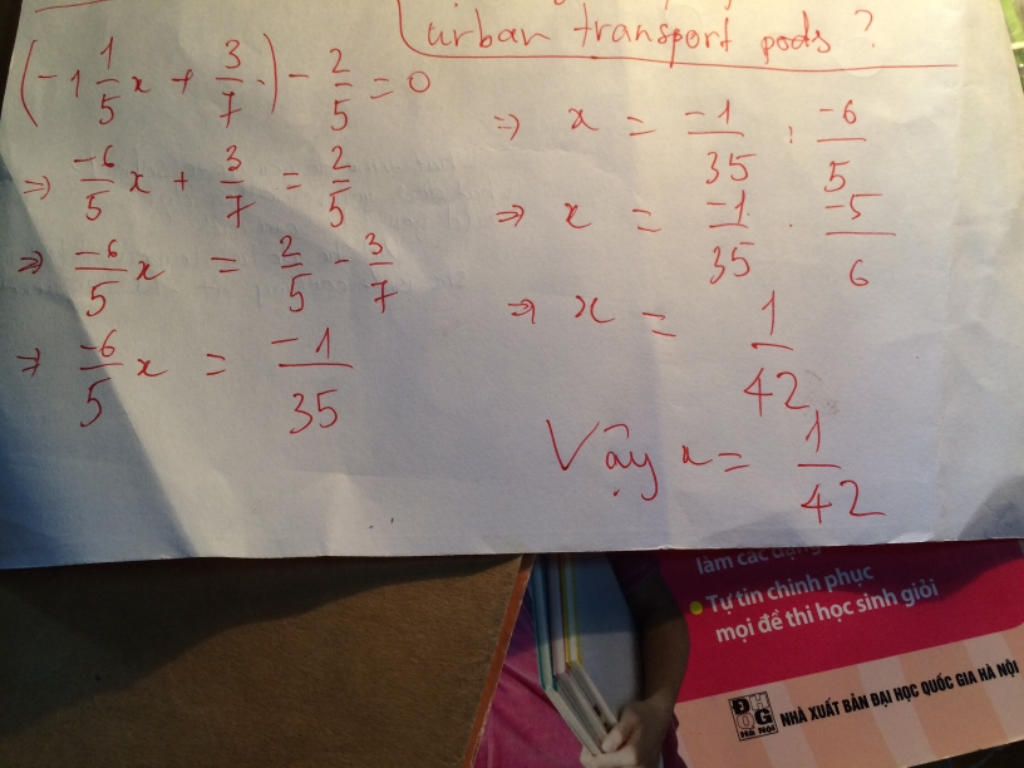 urban transport pods ?
(-1 1/5 x + 3/7 .) - 2/5 = 0
=> -6/5 x + 3/7 = 2/5
=> -6/5 x = 2/5 - 3/7
=> -6/5 x = -1/35
=> x = -1/35 : -6/5
=> x = -1/35 . -5/6
=> x = 1/42
Vậy x = 1/42
làm các dạng
Tự tin chinh phục
mọi đề thi học sinh giỏi
ĐH
QG
Hà Nội
NHÀ XUẤT BẢN ĐẠI HỌC QUỐC GIA HÀ NỘI